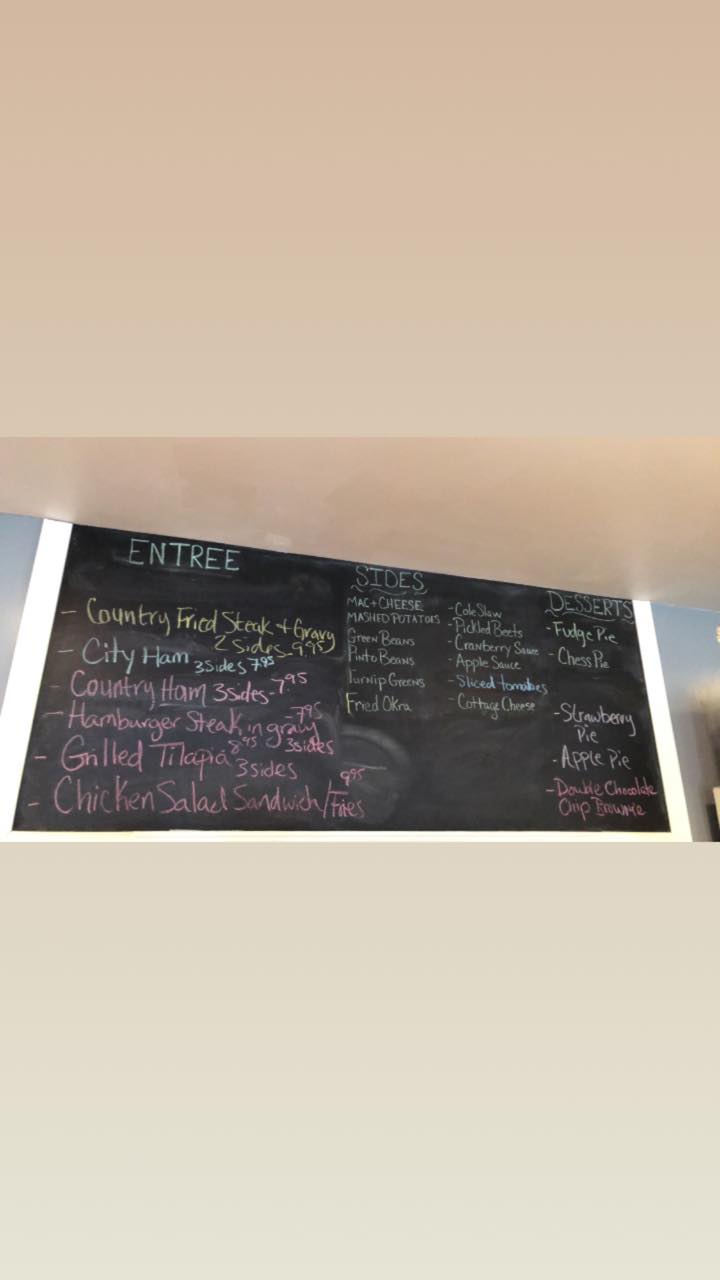 ENTREE
- Country Fried Steak + Gravy
2 Sides - 9.95
- City Ham 3 sides 7.95
- Country Ham 3 sides - 7.95
- Hamburger Steak in gravy - 7.95
3 sides
- Grilled Tilapia 8.95
3 sides
- Chicken Salad Sandwich / Fries 9.95
SIDES
MAC + CHEESE
MASHED POTATOES
Green Beans
Pinto Beans
Turnip Greens
Fried Okra
- Cole Slaw
- Pickled Beets
- Cranberry Sauce
- Apple Sauce
- Sliced tomatoes
- Cottage Cheese
DESSERTS
- Fudge Pie
- Chess Pie
- Strawberry
Pie
- Apple Pie
- Double Chocolate
Chip Brownie